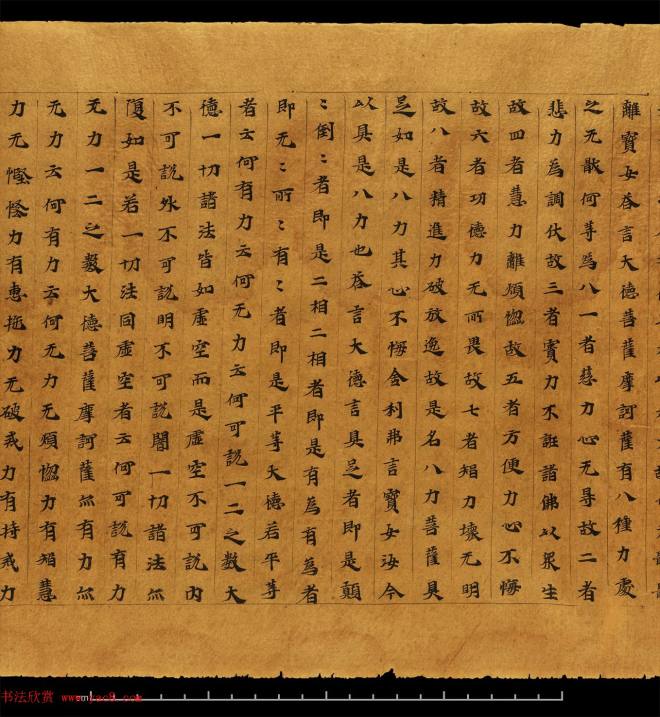 離寶女荅言大德菩薩摩訶薩有八種力處
之无歇何等為八一者慈力心无㝵故二者
悲力為調伏故三者實力不誑諸佛以眾生
故四者慧力離煩惱故五者方便力心不悔
故六者功德力无所畏故七者智力壞无明
故八者精進力破放逸故是名八力菩薩具
足如是八力其心不悔舍利弗言寶女汝今
以具是八力也荅言大德言具足者即是顛
〻倒〻者即是二相二相者即是有為有為者
即无〻所〻有〻者即是平等大德若平等
者云何有力云何无力云何可說一二之數大
德一切諸法皆如虛空而是虛空不可說內
不可說外不可說明不可說闇一切諸法亦
復如是若一切法同虛空者云何可說有力
无力一二之數大德菩薩摩訶薩亦有力亦
无力云何有力云何无力无煩惱力有智慧
力无慳悋力有惠施力无破戒力有持戒力
书法欣赏